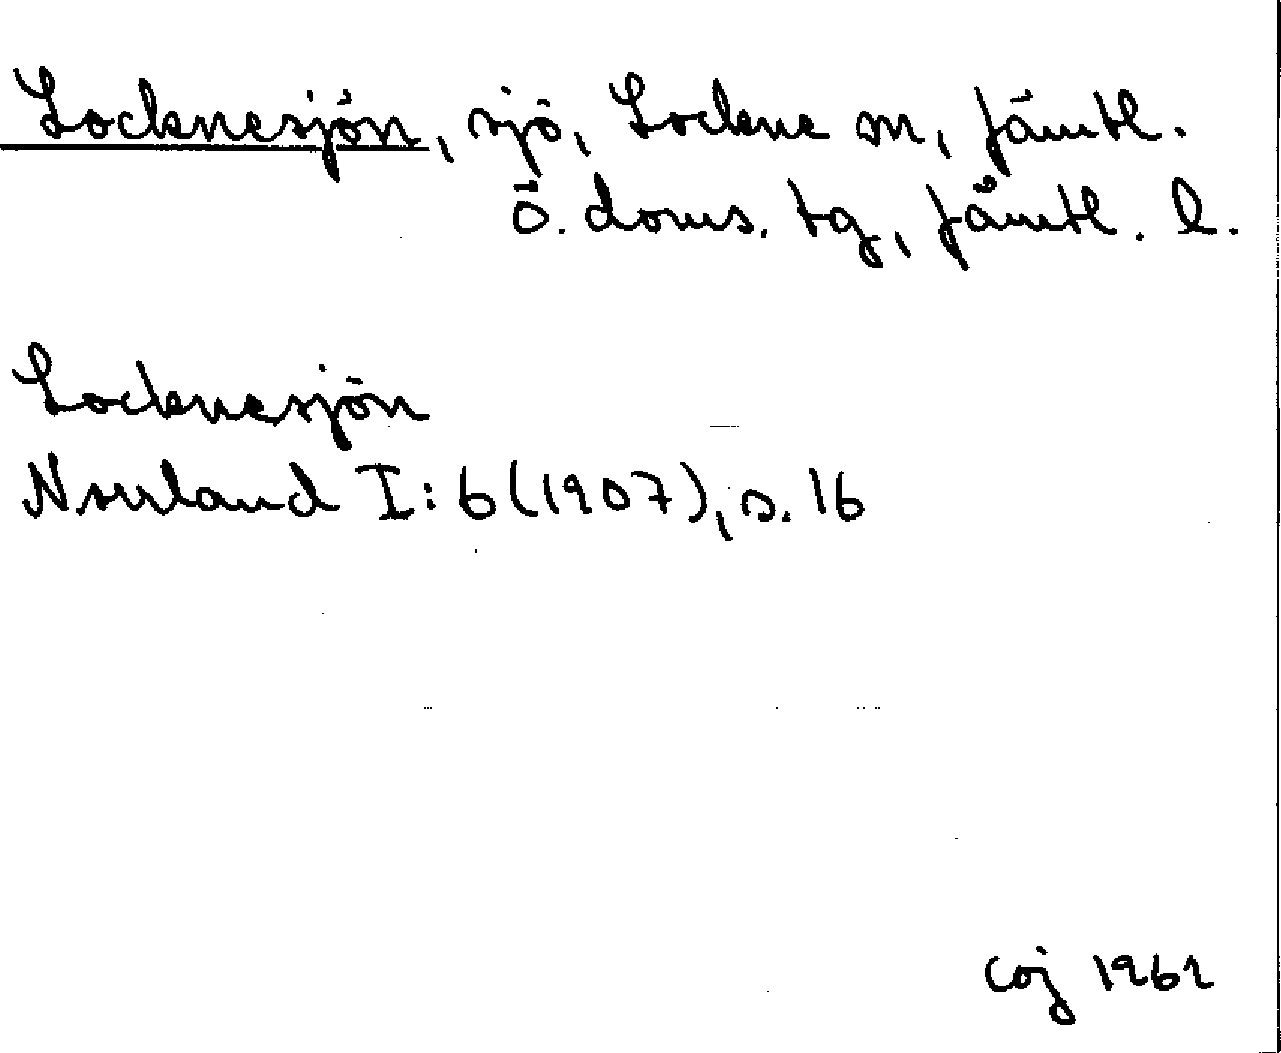 Locknesjön, sjö, Lockne sn, Jämtl.
ö. doms. tg, Jämtl. l.
Locknesjön
Norrland I: 6 (1907), s. 16
COJ 1962